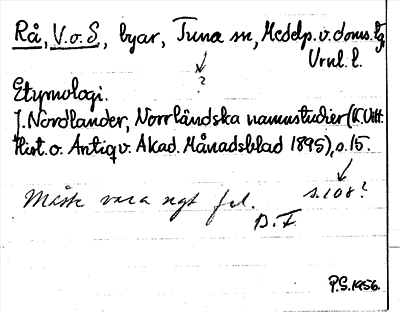 Rå, V. o. S, byar, Tuna sn, Medelp. v. doms. tg,
Vrnl. l.
?
Etymologi.
J. Nordlander, Norrländska namnstudier (K. Vitt.
Hist. o. Antiqv. Akad. Månadsblad 1895), s. 15.
s. 108?
Måste vara ngt fel.
D. F.
P.S. 1956.